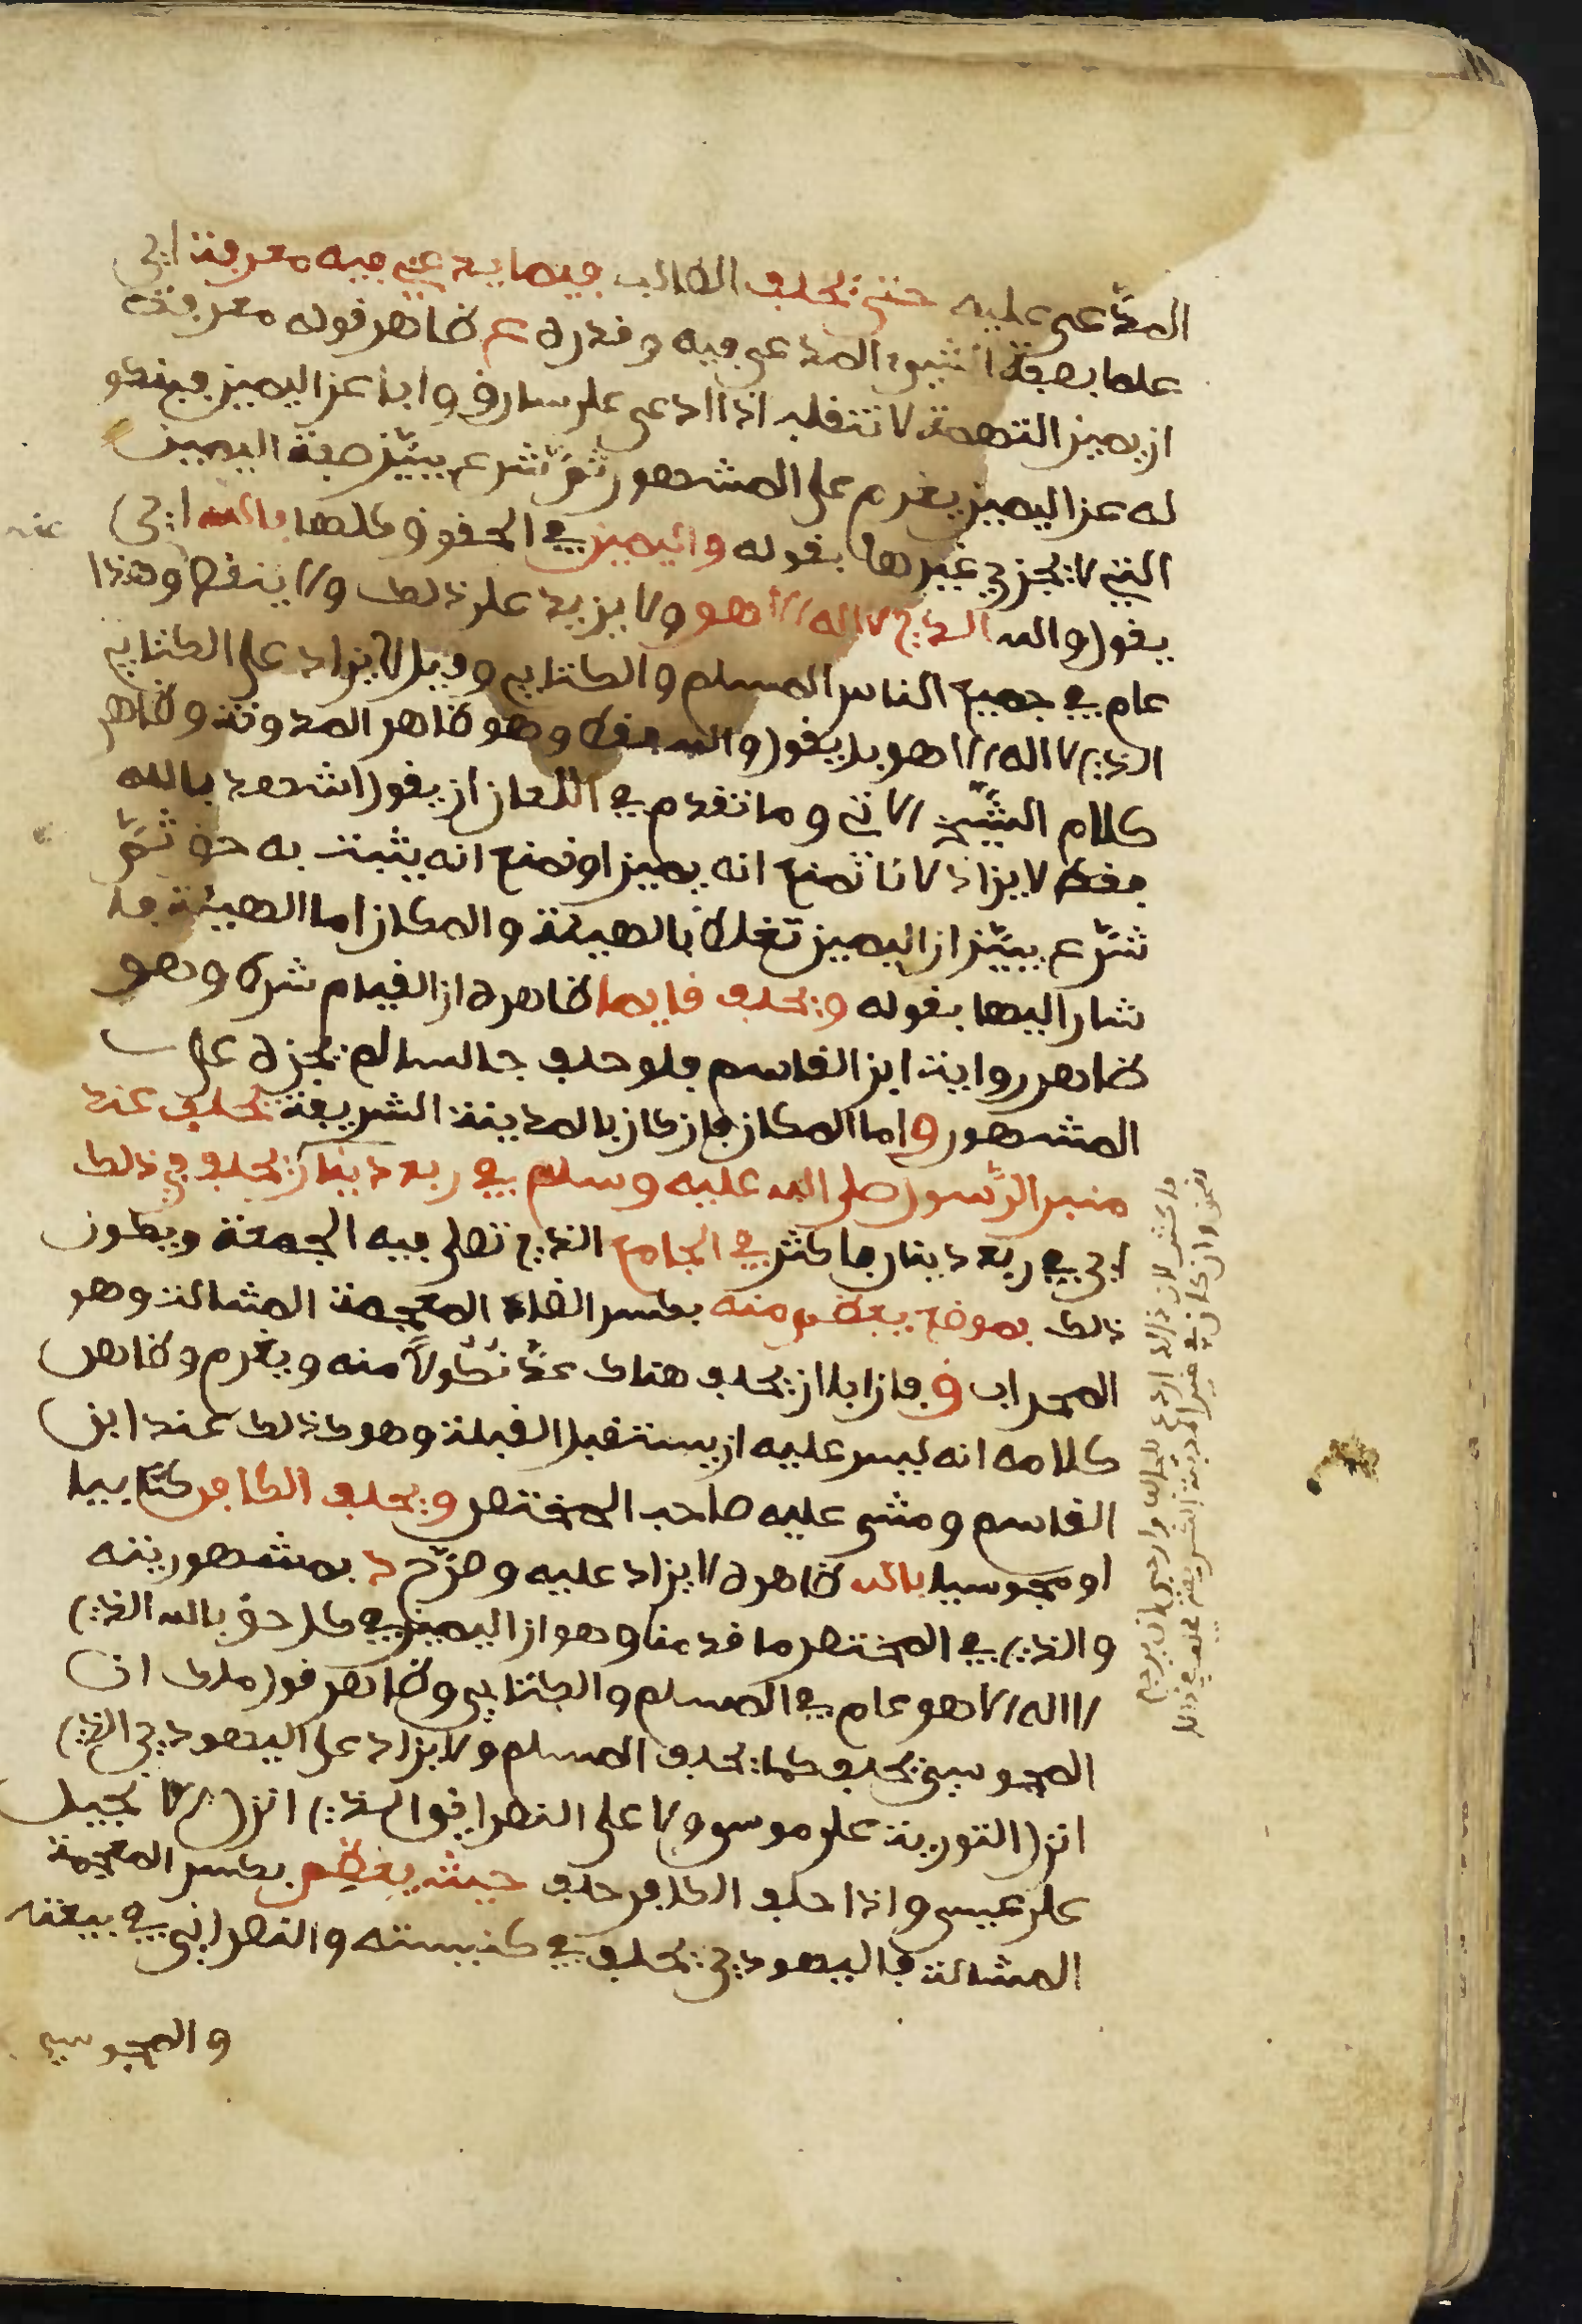 المدعى عليه حتى يحلف الطالب فيما يدعي فيه معرفة اي
علما بصفة الشيء المدعى فيه وقدره ع ظاهر قوله معرفة
ان يمين التهمة لا تنقلب اذا ادعى على سارق وابا عن اليمين فبنكو
له عن اليمين يغرم على المشهور ثم شرع يبين صفة اليمين
التي لا يجزي غيرها بقوله واليمين في الحقوق كلها بالله اي
يقول والله الذي لا اله الا هو ولا يزيد على ذلك ولا ينقص وهذا
عام في جميع الناس المسلم والكتابي وقيل لا يزاد على الكتابي
الذي لا اله الا هو بل يقول والله فقط وهو ظاهر المدونة وظاهر
كلام الشيخ الاتي وما تقدم في اللعان ان يقول اشهد بالله
فقط لا يزاد لانا نمنع انه يمين او نمنع انه يثبت به حق ثم
شرع يبين ان اليمين تغلظ بالهيئة والمكان اما الهيئة فا
شار اليها بقوله ويحلف قايما ظاهره ان القيام شرط وهو
ظاهر رواية ابن القاسم فلو حلف جالسا لم يجزه على
المشهور واما المكان فان كان بالمدينة الشريفة يحلف عند
منبر الرسول صلى الله عليه وسلم في ربع دينار يحلف في ذلك
اي في ربع دينار فاكثر في الجامع الذي تصلى فيه الجمعة ويكون
ذلك بموضع يعظم منه بكسر الظاء المعجمة المشالة وهو
المحراب وفان ابا ان يحلف هناك عد نكولا منه ويغرم وظاهر
كلامه انه ليس عليه ان يستقبل القبلة وهو كذلك عند ابن
القاسم ومشى عليه صاحب المختصر ويحلف الكافر كتابيا
او مجوسيا بالله ظاهره لا يزاد عليه وصرح د بمشهوريته
والذي في المختصر ما قدمنا وهو ان اليمين في كل حق بالله الذي
لا اله الا هو عام في المسلم والكتابي وظاهر قول ملك ان
المجوسي يحلف كما يحلف المسلم ولا يزاد على اليهودي الذي
انزل التورية على موسى ولا على النصراني الذي انزل الانجيل
على عيسى واذا حلف الكافر حلف حيث يعظم بكسر المعجمة
المشالة فاليهودي يحلف في كنيسته والنصراني في بيعته
والمجوسي